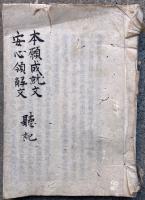 本願成就文
安心領解文
聴記